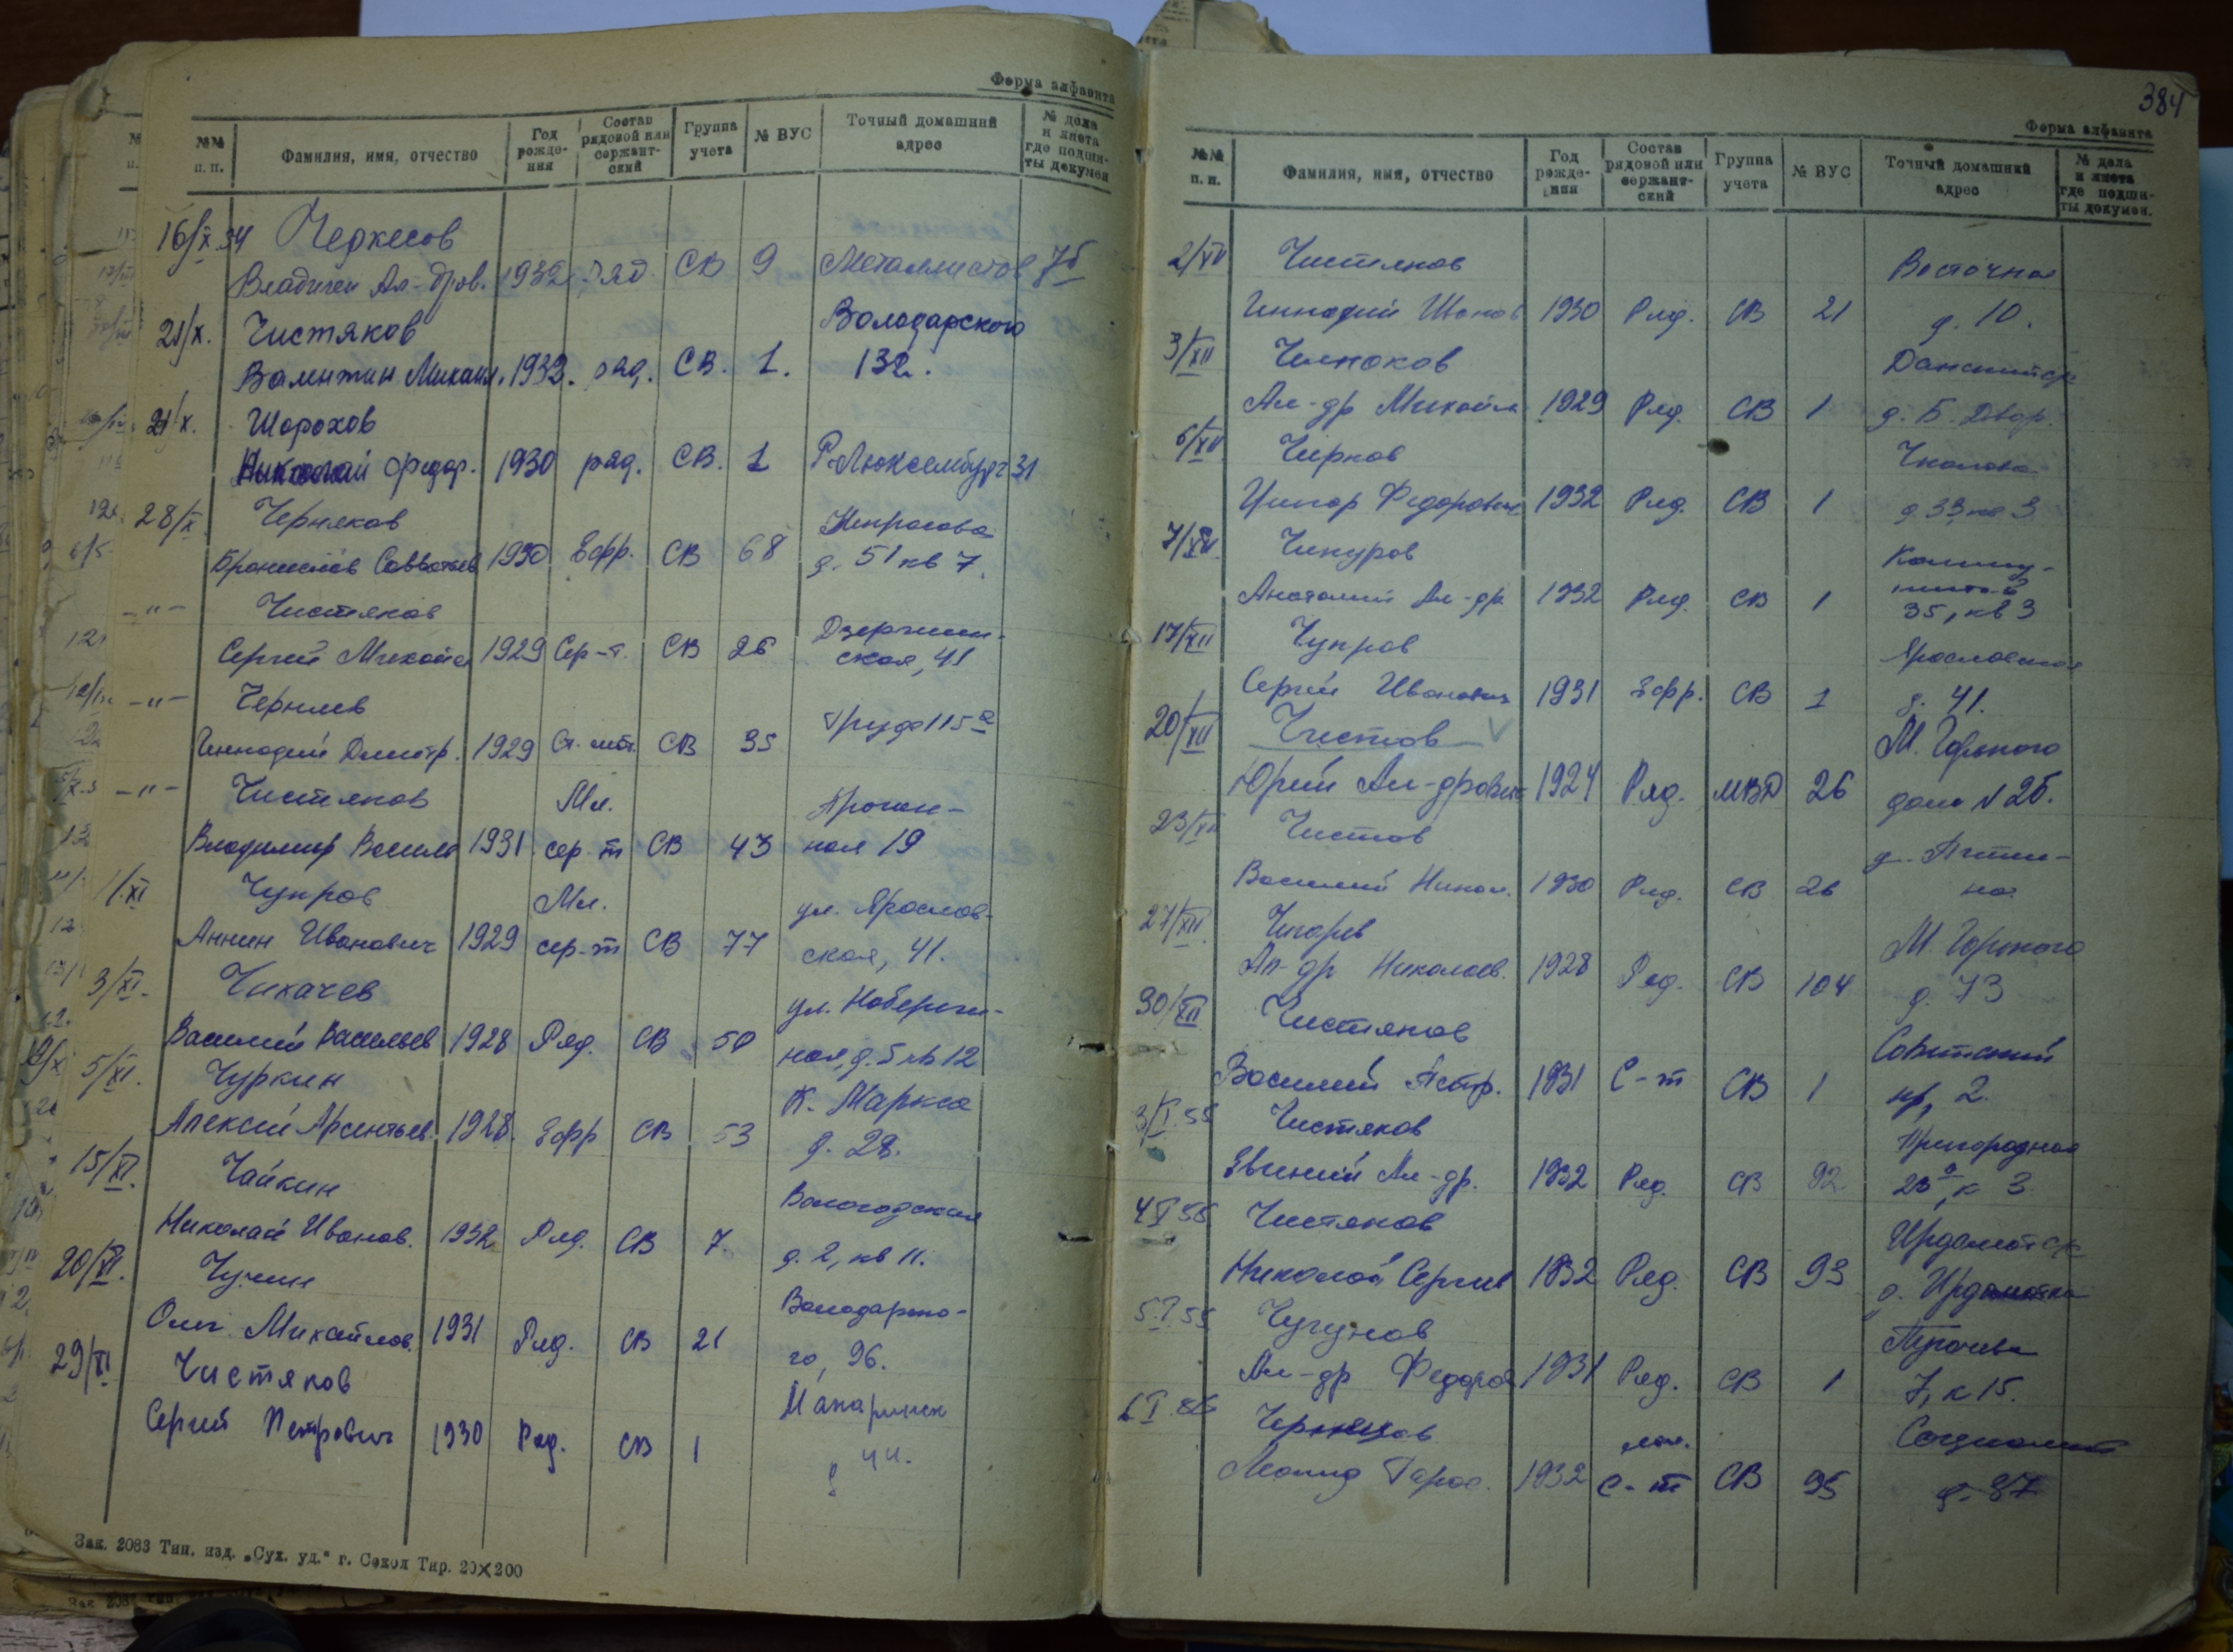 Форма алфавита
№№ п. п. Фамилия, имя, отчество Год рожде- ния Состав рядовой или сержант- ский Группа учета № ВУС Точный домашний адрес № дела и листа где подши- ты докумен
16/X.54 Черкесов
Ал-дров. 1932 ряд. СВ 9 Металлистов 7б
21/X. Чистяков Володарского
Валентин Михаил. 1932. ряд. СВ. 1. 132.
21/X. Шорохов
Николай Федор. 1930 ряд. СВ. 1 Р.Люксембург 31
28/X. Черняков Некрасова
Бронислав Савватьев 1930 Ефр. СВ 68 д. 51 кв 7.
-"- Чистяков Дзержин-
Сергей Михайл 1929 Сер-т. СВ 26 ская, 41
-"- Чернлев
Геннадий Дмитр. 1929 Ст. СВ 35 Труда 115а
-"- Чистяков Мл. Прогон-
Владимир Василь 1931 сер-т СВ 43 ная 19
1/XI Чупров Мл. ул. Ярослав-
Иванович 1929 сер-т СВ 77 ская, 41.
3/XI. Чихачев ул. Набереж-
Василий Васильев 1928 Ряд. СВ 50 ная, д. 5 кв 12
5/XI. Чуркин К. Маркса
Алексей Арсентьев. 1928. Ефр СВ 53 д. 28.
15/XI. Чайкин Вологодская
Николай Иванов. 1932 Ряд. СВ 7. д. 2, кв 11.
20/XI. Чучин Володарско-
Олег Михайлов. 1931 Ряд. СВ 21 го, 96.
29/XI Чистяков
Сергей Петрович 1930 Ряд. СВ 1
Зак. 2083 Тип. изд. „Сух. уд." г. Сокол Тир. 20×200
384
Форма алфавита
№№ п. п. Фамилия, имя, отчество Год рожде- ния Состав рядовой или сержант- ский Группа учета № ВУС Точный домашний адрес № дела и листа где подши- ты докумен.
2/XII Чистяков Восточная
Геннадий 1930 Ряд. СВ 21 д. 10.
3/XII
Ал-др Михайл 1929 Ряд. СВ 1 д. Б. Двор.
6/XII Чирков Чкалова
Федорович 1932 Ряд. СВ 1 д. 33, кв 3
7/XII. Чикуров Комму-
Анатолий Ал-др 1932 Ряд. СВ 1 35, кв 3
17/XII Чупров Ярославская
Сергей Иванович 1931 Ефр. СВ 1 д. 41.
20/XII Чистов М. Горького
Юрий Ал-дрович 1924 Ряд. МВД 26 дом N 26.
23/XII Чистов
Василий Никол. 1930 Ряд. СВ 26
27/XII Чигарев М. Горького
Ал-др Николаев. 1928 Ряд. СВ 104 д. 73
30/XII Чистяков Советский
Василий Петр. 1931 С-т СВ 1 пр, 2.
3/I.55 Чистяков Пригородная
Евгений Ал-др. 1932 Ряд. СВ 92 23а, к 3
4/I 55 Чистяков Ирдоматск
Николай Сергеев 1932 Ряд. СВ 93 д. Ирдоматка
5.I.55 Чугунов
Ал-др Федоров 1931 Ряд. СВ 1 7, к 15.
мл. Социалист
Леонид 1932 с-т СВ 95 д. 87